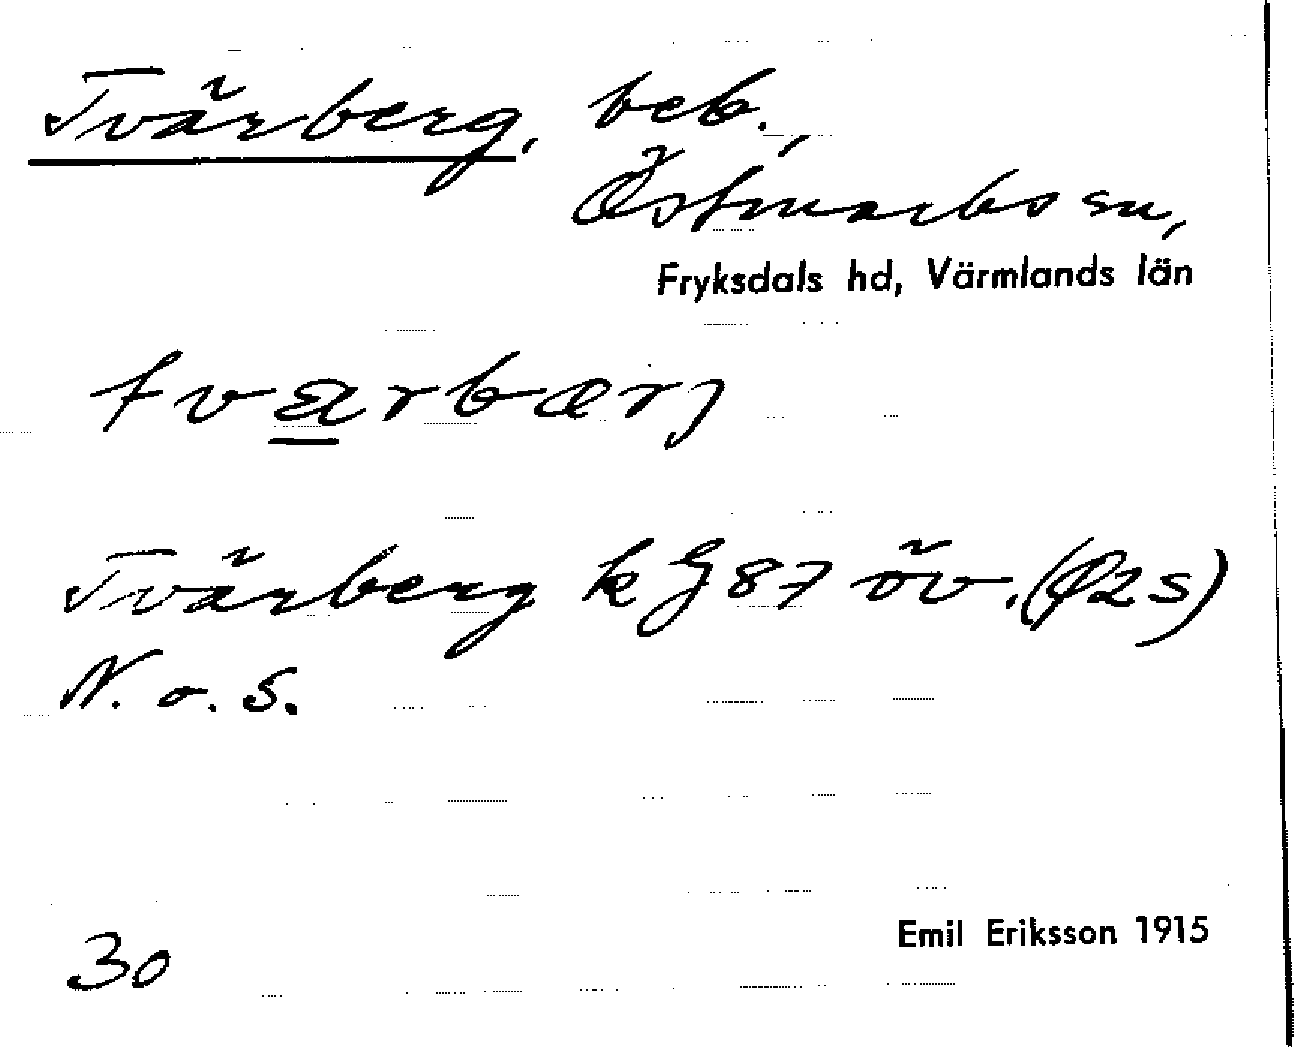 Tvärberg, beb.,
Östmarks sn,
Fryksdals hd, Värmlands län
tværbærj
Tvärberg k J87 öv. (Q2s)
N. o. S.
30
Emil Eriksson 1915